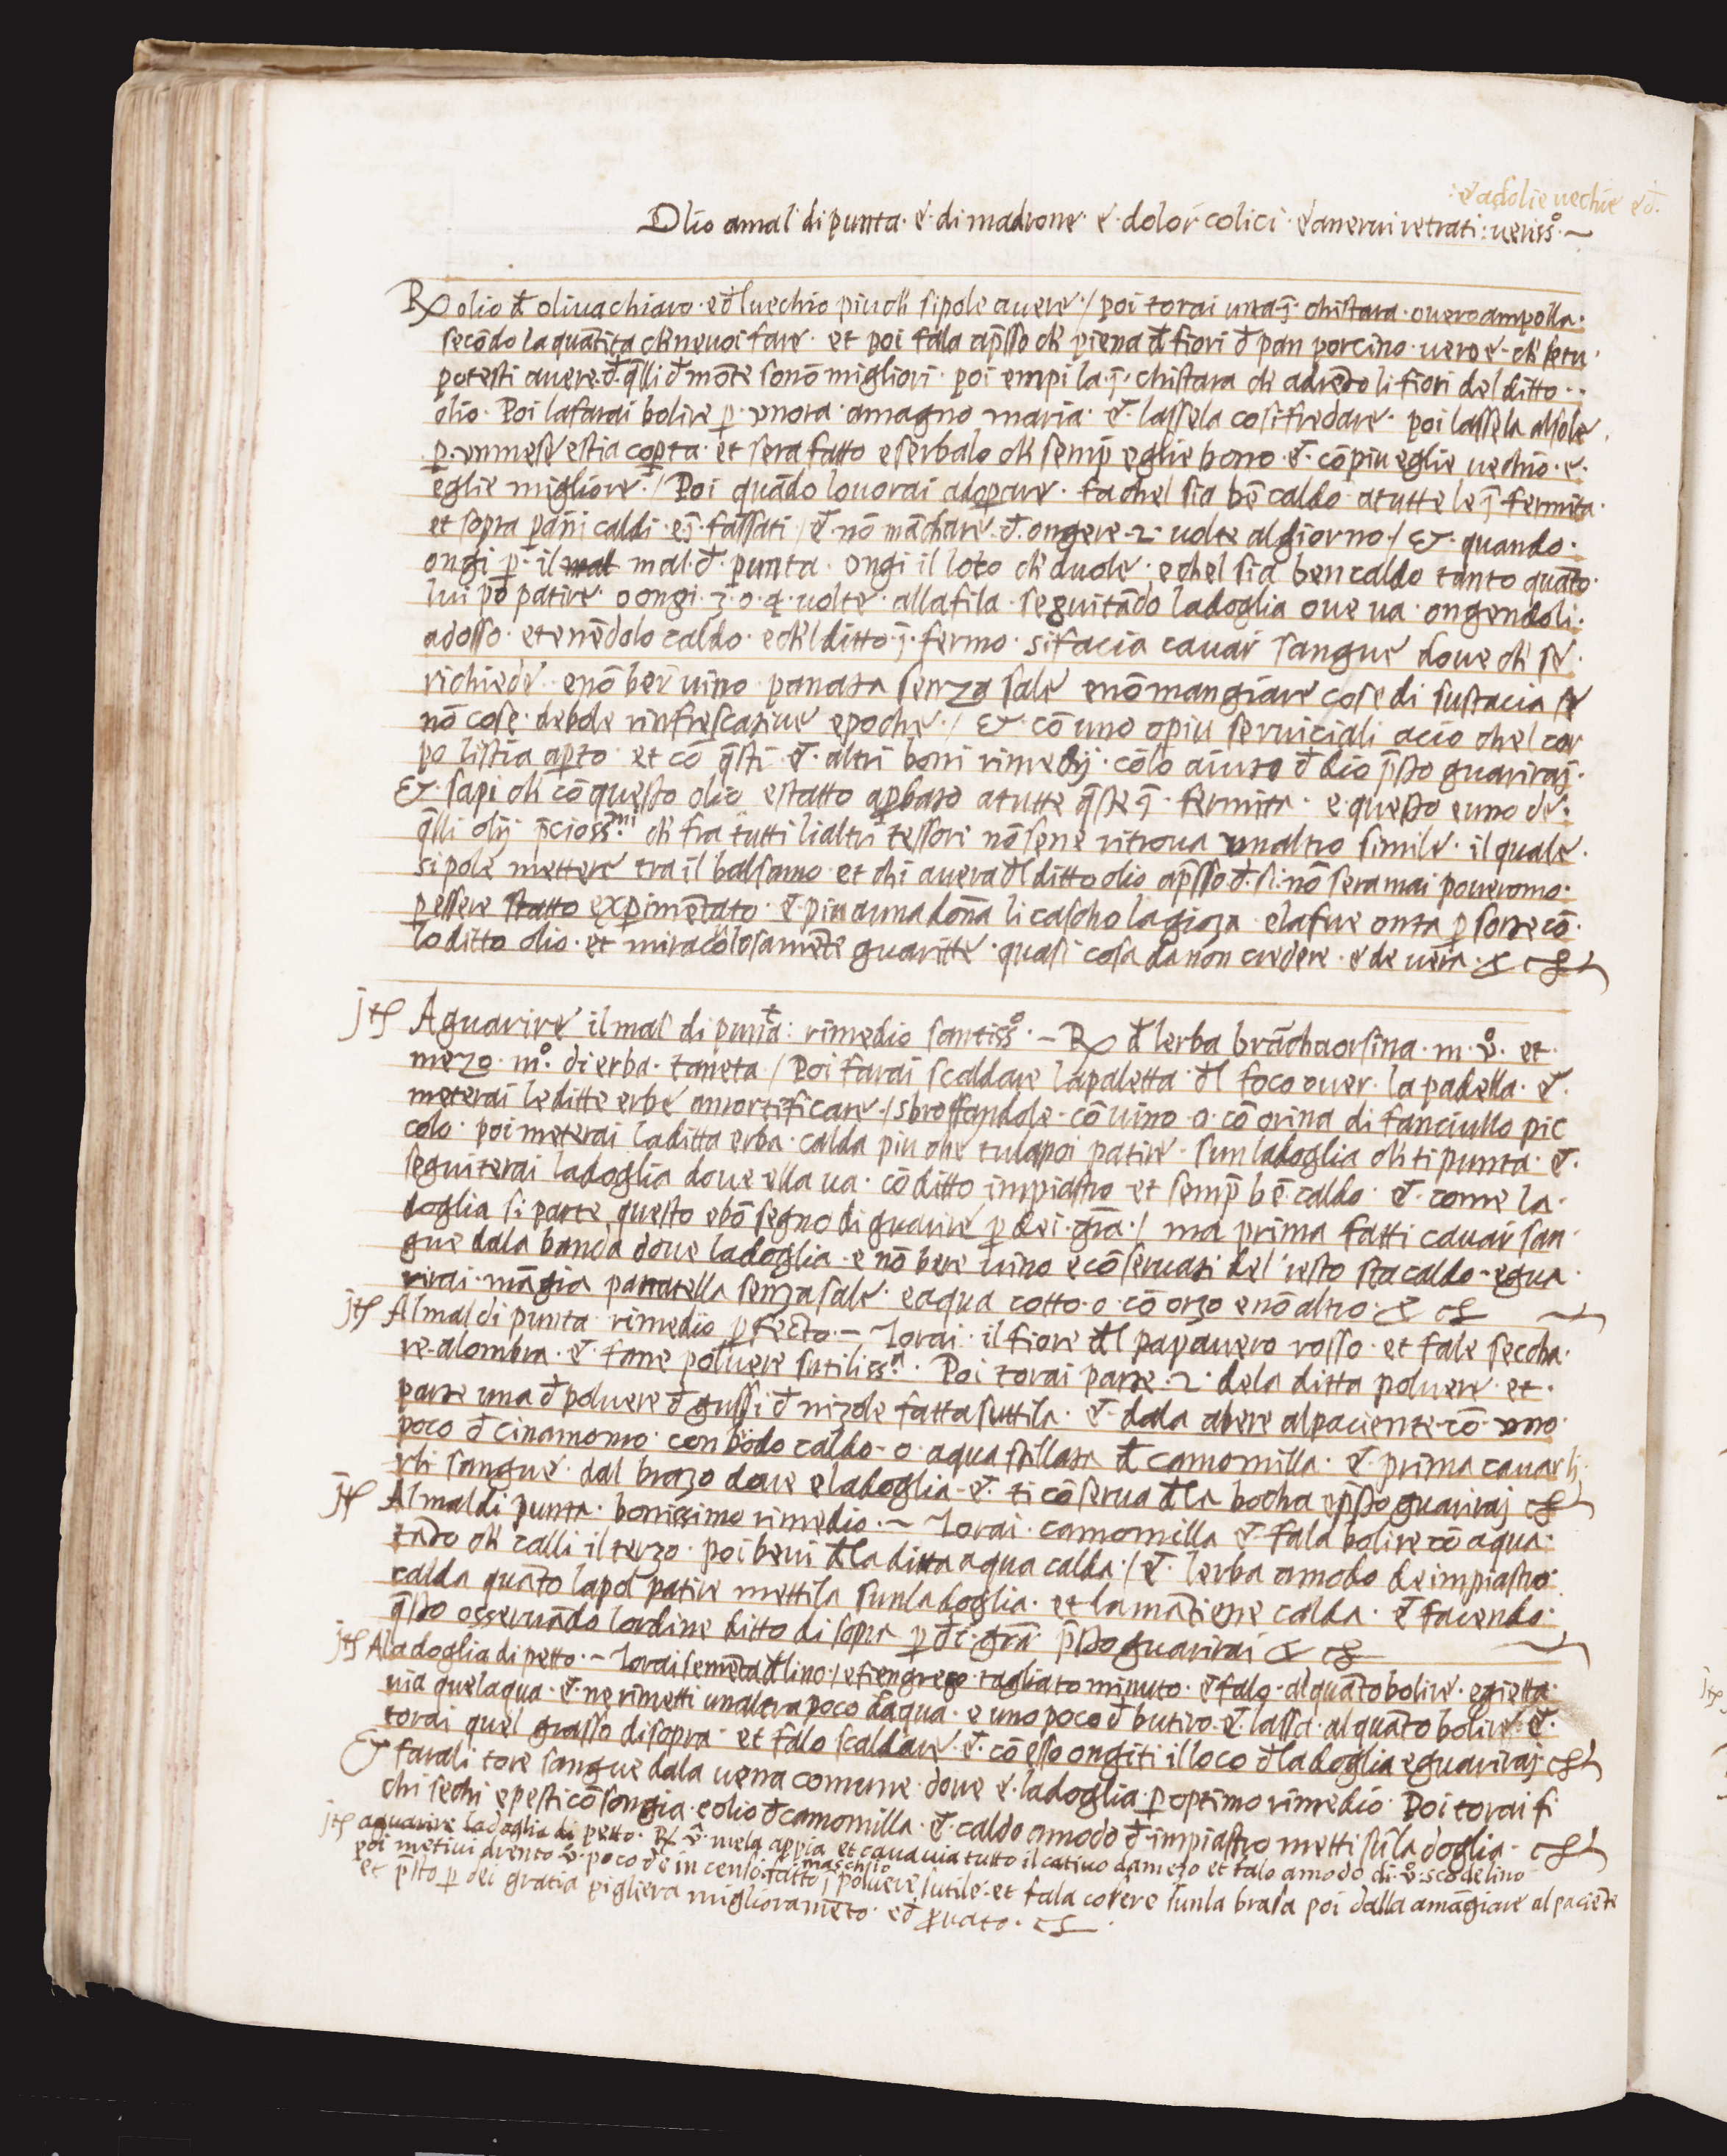 : e adolie uechie e đ.
Olio amal di punta · e · di madrone · e · dolor colici · e anerui retrati : ueriss.º ~
℞ olio đ oliua chiaro · e đl uechio piu ch̄ si pole auere · / poi torai una j̄ · chistara · ouero ampolla ·
secōdo la quātita ch̄ ne uoi fare · et poi falla ap̄sso ch̄ piena đ fiori đ pan porcino · uero e · ch̄ se tu ·
potesti auere · đ q̄lli đ mōte sonō migliori · poi empi la · j̄ · chistara ch̄ adrēto li fiori del ditto · ·
olio · Poi la farai bolire p̱ · unora · amagno maria · e · lassela cosi fredare · poi lassela al sole
p̱ · un mese e stia cop̱ta · et sera fatto e serbalo ch̄ semp̄ eglie bono · e · cō piu eglie uechio · e ·
eglie migliore · / Poi quādo lo uorai adop̱are · fa chel sia bē caldo a tutte le j̄ fermita ·
et sopra pāni caldi · e j̄ · fassati / e · nō māchare · đ · ongere · 2 · uolte al giorno · / Et · quando ·
ongi p̱ · il mal mal · đ · punta · ongi il loco ch̄ duole · e chel sia ben caldo tanto quāto ·
lui pō patire · o ongi · 3 · o · 4 · uolte · alla fila · seguitādo la doglia oue ua · ongendoli ·
adosso · e tenēdolo caldo · e ch̄l ditto · j̄ · fermo · si facia cauar sangue doue ch̄ se ·
richiede · e nō ber uino · panata senza sale e nō mangiare cose di sustacia se
nō cose · debole rinfrescatiue e poche · / Et · cō uno o piu seruiciali acio chel cor
po li stia ap̱to · et cō q̄sti · e · altri boni rimedij · cō lo aiuto đ dio p̄sto guariraj ·
Et · sapi ch̄ cō questo olio e statto ap̱bato a tutte q̄ste j̄ · fermita · e questo e uno de ·
q̄lli olij p̄cioss.mi ch̄ fra tutti li altri tessori nō sene ritroua unaltro simile · il quale ·
si pole mettere tra il balsamo · et chi auera đl ditto olio ap̄sso đ · si · nō sera mai pouer omo :
p̱ essere statto exp̱imētato · e · piu a una dōna li cascho la gioza · e la fue onta p̱ sorte cō ·
lo ditto olio · et miracolosamēte guaritte · quasi cosa da non credere · e de uera ·
jtem A guarire il mal di punta : rimedio santiss.º · – ℞ đ lerba brācha orsina · m · ů · et ·
mezo · m.º · di erba · taneta / Poi farai scaldare la paletta · đl foco ouer · la padella · e ·
meterai le ditte erbe amorteficare · / sbroffandole · cō uino · o · cō orina di fanciullo pic
colo · poi meterai la ditta erba · calda piu che tu la poi patire · sun la doglia ch̄ ti punta · e ·
seguiterai la doglia doue ella ua · cō ditto impiastro et semp̄ bē caldo · e · come la ·
doglia si parte questo e bō segno di guarire p̱ dei · grā · / ma prima fatti cauar san
gue dala banda doue la doglia · e nō bere uino e cōseruati del resto sta caldo · e gua
rirai · māgia panatella senza sale · e aqua cotto · o · cō orzo e nō altro ·
jtem Al mal di punta rimedio p̱fecto · – Torai · il fiore đl papauero rosso · et fale seccha ·
re · a lombra · e · fane poluere sutiliss.a · Poi torai parte · 2 · dela ditta poluere · et ·
parte una đ poluere đ gussi đ nizole fatta suttila · e · dala abere al paciente · cō uno ·
poco đ cinamomo · con brodo caldo · o · aqua stillata đ camomilla · e · prima cauarli ·
rli sangue · dal brazo doue e la doglia · e · ti cōserua đ la bocha e p̄sto guariraj
jtem Al mal di punta · bonissimo rimedio · ~ Torai · camomilla e · fala bolire cō aqua ·
tāto ch̄ calli il terzo · poi beui đ la ditta aqua calda · / e · lerba amodo de impiastro ·
calda quāto la poi patire mettila sun la doglia · et la mātiene calda · e facendo ·
q̄sto osseruādo lordine ditto di sopra p̱ đi · grā p̄sto guarirai
jtem A la doglia di petto · – Torai semēta đ lino · / e fiengreco tagliato minuto · e falo · alquāto bolire · e gietta ·
uia quelaqua · e · ne rimetti unaltra poco daqua · e uno poco đ butiro · e · lassa · alquāto bolire · e ·
torai quel grasso di sopra · et falo scaldare · e · cō esso ongiti il loco đ la doglia e guariraj
Et farali tore sangue dala uena comune doue e · la doglia p̱ optimo rimedio · Poi torai fi
chi sechi e pesti cō songia · e olio đ camomilla · e · caldo amodo đ impiastro metti sūla doglia ·
jtem a guarire la doglia di petto · ℞ ů · mela appia et caua uia tutto il catiuo da mezo et falo amodo di · ů · scodelino
poi metiui drento ů · poco de incenso maschio fatto j̄ poluere sutile · et fala cosere sunla brasa poi dalla amāgiare al paciēte
et p̄sto p̱ dei gratia pigliera miglioramēto · e đ prouato ·